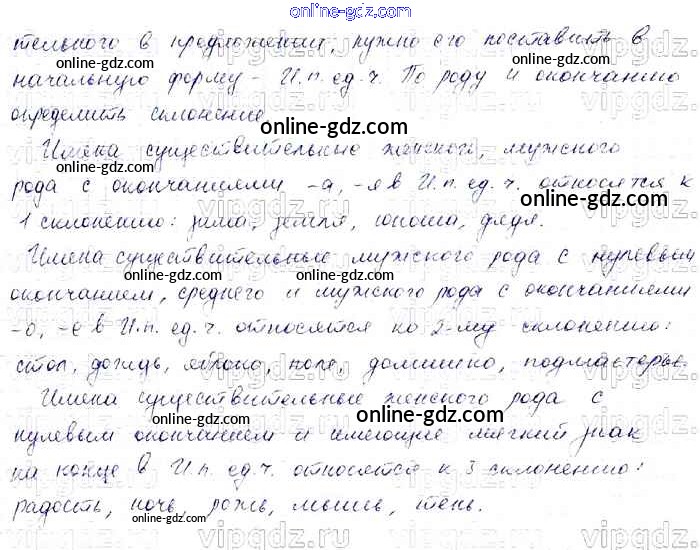 online-gdz.com
тельного в предложении, нужно его поставить в
online-gdz.com online-gdz.com
начальную форму - И.п. ед.ч. По роду и окончанию
определить склонение.
online-gdz.com
Имена существительные женского, мужского
online-gdz.com
рода с окончаниями -а, -я в И.п. ед.ч. относятся к
online-gdz.com
1 склонению: зима, земля, юноша, дядя.
online-gdz.com
Имена существительные мужского рода с нулевым
online-gdz.com online-gdz.com
окончанием, среднего и мужского рода с окончаниями
-о, -е в И.п. ед.ч. относятся ко 2-му склонению:
online-gdz.com
стол, дождь, яблоко, поле, домишко, подмастерье.
online-gdz.com
Имена существительные женского рода с
online-gdz.com
нулевым окончанием и имеющие мягкий знак
online-gdz.com
на конце в И.п. ед.ч. относятся к 3 склонению:
online-gdz.com
радость, ночь, рожь, мышь, тень.
online-gdz.com
vipgdz.ru